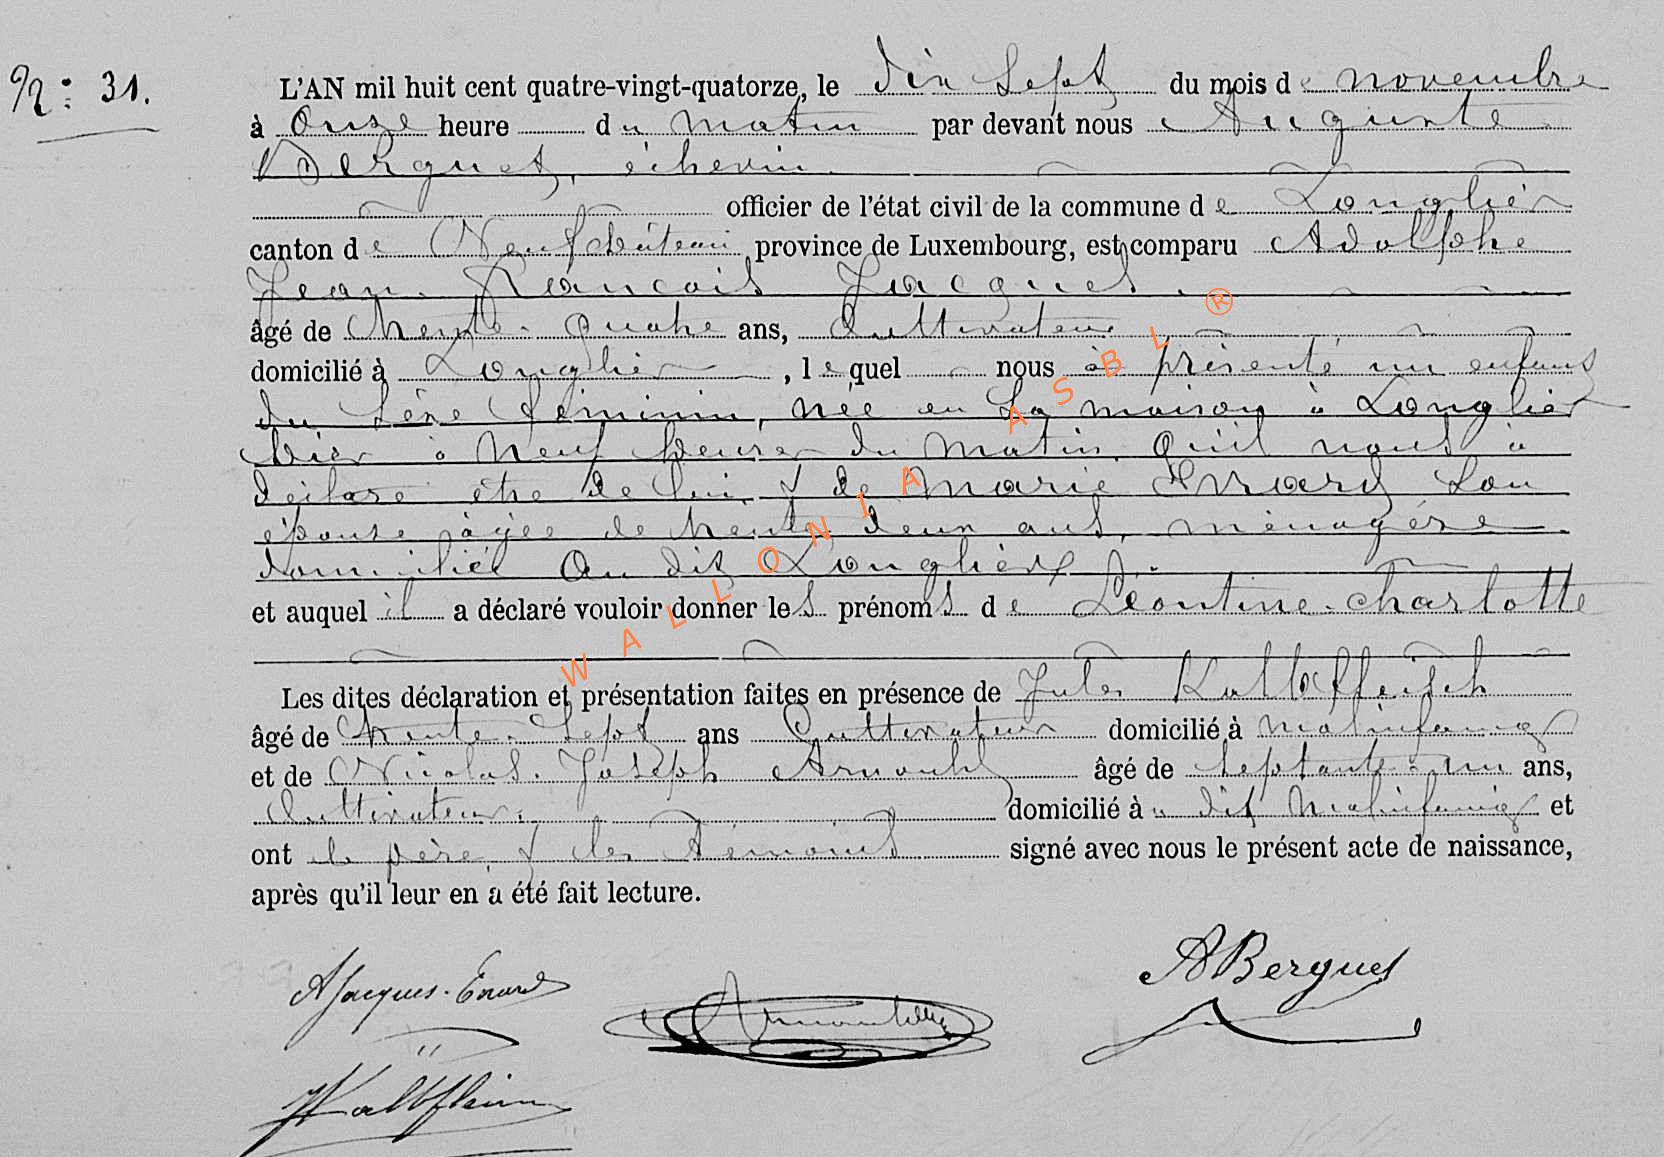 N° 31.
L'AN mil huit cent quatre-vingt-quatorze, le dix Sept du mois de novembre
à Onze heure du matin par devant nous Auguste
Berguet, échevin
officier de l'état civil de la commune de Longlier
canton de Neufchâteau province de Luxembourg, est comparu Adolphe
Jean-François Jacques.
âgé de trente-quatre ans, Cultivateur
domicilié à Longlier, lequel nous à présenté un enfant
du Sèxe féminin, née en Sa maison à Longlier
hier à neuf heures du matin qu'il nous à
déclaré être de lui & de Marie Evrard Son
épouse âgée de trente deux ans, ménagère
domiciliés Au dit Longlier
et auquel il a déclaré vouloir donner les prénoms de Léontine-Charlotte
Les dites déclaration et présentation faites en présence de Jules Kalbffeisch
âgé de trente-Sept ans Cultivateur domicilié à Molinfaing
et de Nicolas-Joseph Arnould âgé de Septante-un ans,
Cultivateur domicilié à u dit Molinfaing et
ont le père & les Témoins signé avec nous le présent acte de naissance,
après qu'il leur en a été fait lecture.
AJacques-Evrard
ABerguet
WALLONIA ASBL ®